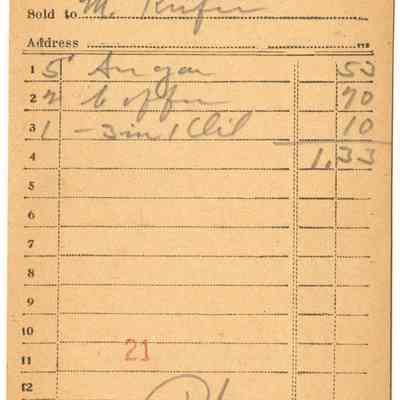 Sold to M.
Address
1 5 Sugar 53
2 2 Coffee 70
3 1 - 3 in 1 Oil 10
4 1.33
5
6
7
8
9
10
11 21
12